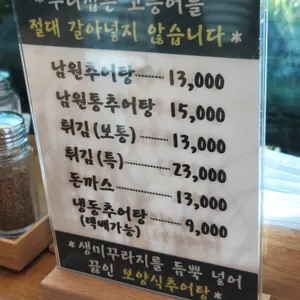 우리집은 고등어를
절대 갈아넣지 않습니다*
남원추어탕 13,000
남원통추어탕 15,000
튀김(보통) 13,000
튀김(특) 23,000
돈까스 13,000
냉동추어탕 9,000
(택배가능)
*생미꾸라지를 듬뿍 넣어
끓인 보양식추어탕*